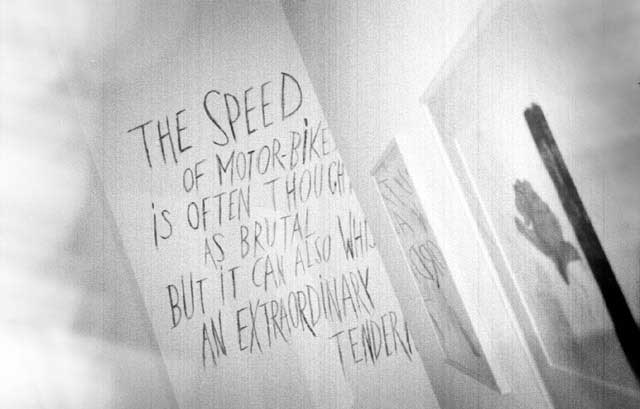 THE SPEED
OF MOTOR-BIKE
iS OFTEN THOUGH
AS BRUTAL
BUT iT CAN ALSO WHIS
AN EXTRAORDiNARY
TENDER